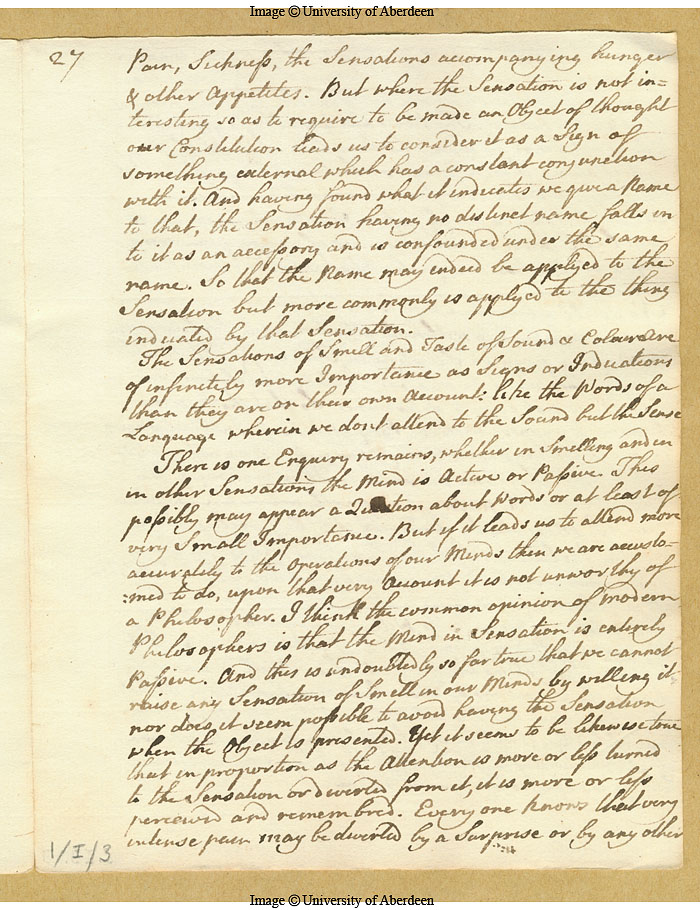 Image © University of Aberdeen
27
Pain, Sickness, the Sensations accompanying hunger
& other Appetites. But where the Sensation is not in=
teresting so as to require to be made an Object of thought
our Constitution leads us to consider it as a Sign of
something external which has a constant conjunction
with it. And having found what it indicates we give a Name
to that, the Sensation having no distinct name falls in
to it as an accessory and is confounded under the same
name. So that the Name may indeed be applyed to the
Sensation but more commonly is applyed to the thing
indicated by that Sensation.
The Sensations of Smell and Taste of Sound & Colour are
of infinitely more Importance as Signs or Indications
than they are on their own Account: like the Words of a
Language wherein we dont attend to the Sound but the Sense
There is one Enquiry remains, whether in Smelling and in
in other Sensations the Mind is Active or Passive. This
possibly may appear a Question about Words or at least of
very Small Importance. But if it leads us to attend more
accurately to the Operations of our Minds then we are accusto=
:med to do, upon that very Account it is not unworthy of
a Philosopher. I think the common opinion of modern
Philosophers is that the Mind in Sensation is entirely
Passive. And this is undoubtedly so far true that we cannot
raise any Sensation of Smell in our Minds by willing it
nor does it seem possible to avoid having the Sensation
when the Object is presented. Yet it seems to be likewise true
that in proportion as the Attention is more or less turned
to the Sensation or diverted from it, it is more or less
perceived and remembred. Every one knows that very
intense pain may be diverted by a Surprise or by any other
1/I/3
Image © University of Aberdeen